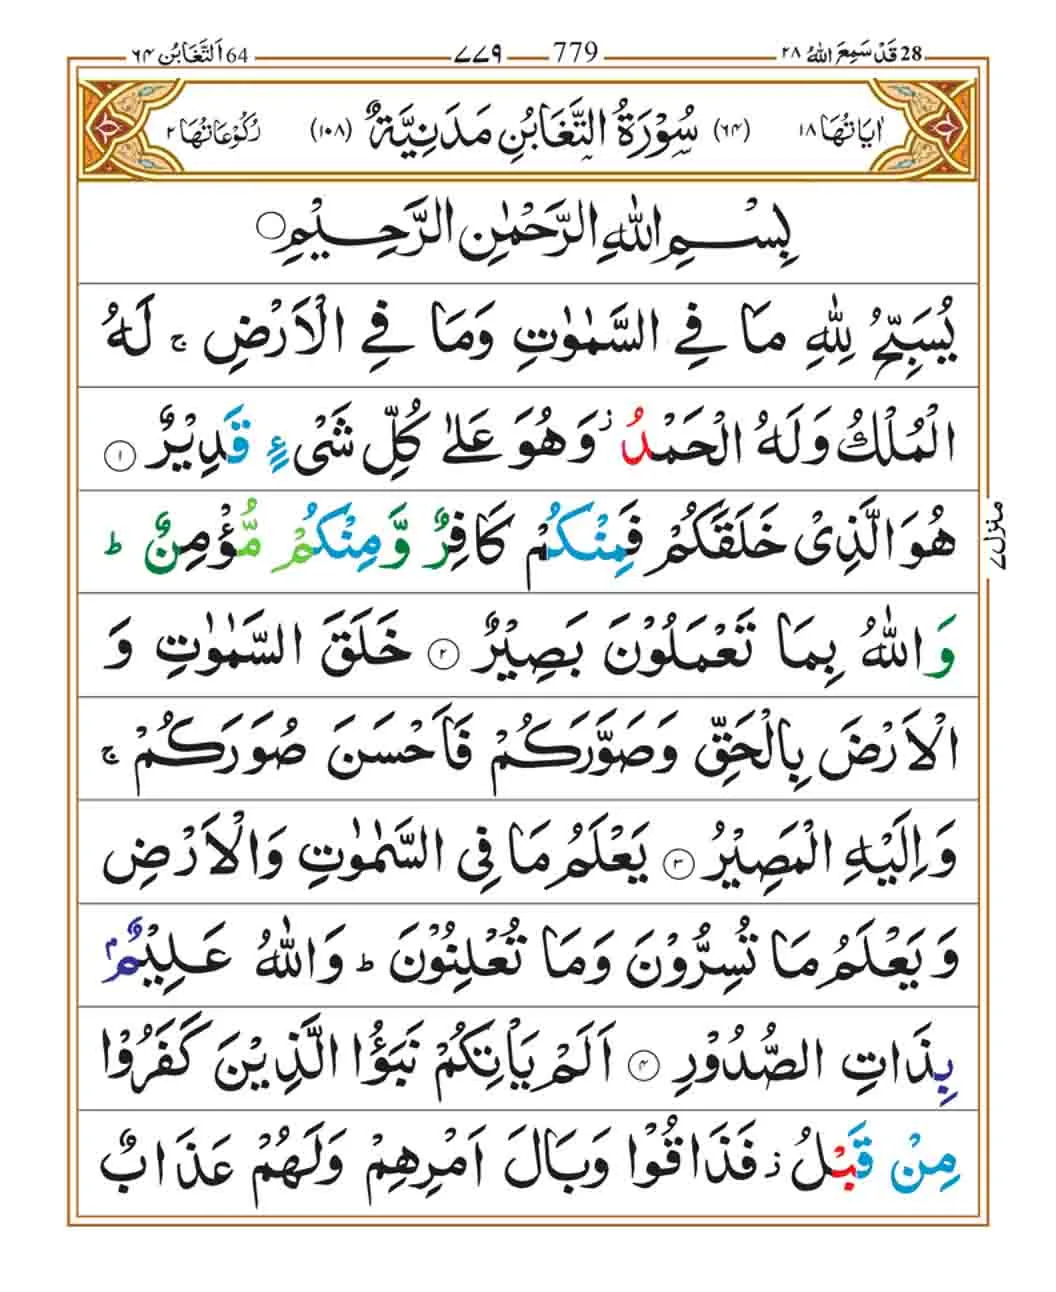 28 قَدْ سَمِعَ اللهُ ۲۸ 779 ۷۷۹ 64 اَلتَّغَابُن ۶۴
اٰيَاتُهَا ۱۸ (۶۴) سُوْرَةُ التَّغَابُنِ مَدَنِيَّةٌ (۱۰۸) رُكُوْعَاتُهَا ۲
بِسْمِ اللهِ الرَّحْمٰنِ الرَّحِيْمِ ○
يُسَبِّحُ لِلّٰهِ مَا فِي السَّمٰوٰتِ وَمَا فِي الْاَرْضِ ۚ لَهُ
الْمُلْكُ وَلَهُ الْحَمْدُ ز وَهُوَ عَلٰى كُلِّ شَىْءٍ قَدِيْرٌ ۱
هُوَ الَّذِىْ خَلَقَكُمْ فَمِنْكُمْ كَافِرٌ وَّمِنْكُمْ مُّؤْمِنٌ ط
وَاللهُ بِمَا تَعْمَلُوْنَ بَصِيْرٌ ۲ خَلَقَ السَّمٰوٰتِ وَ
الْاَرْضَ بِالْحَقِّ وَصَوَّرَكُمْ فَاَحْسَنَ صُوَرَكُمْ ۚ
وَاِلَيْهِ الْمَصِيْرُ ۳ يَعْلَمُ مَا فِى السَّمٰوٰتِ وَالْاَرْضِ
وَيَعْلَمُ مَا تُسِرُّوْنَ وَمَا تُعْلِنُوْنَ ط وَاللهُ عَلِيْمٌۢ
بِذَاتِ الصُّدُوْرِ ۴ اَلَمْ يَاْتِكُمْ نَبَؤُا الَّذِيْنَ كَفَرُوْا
مِنْ قَبْلُ ز فَذَاقُوْا وَبَالَ اَمْرِهِمْ وَلَهُمْ عَذَابٌ
منزل ۷